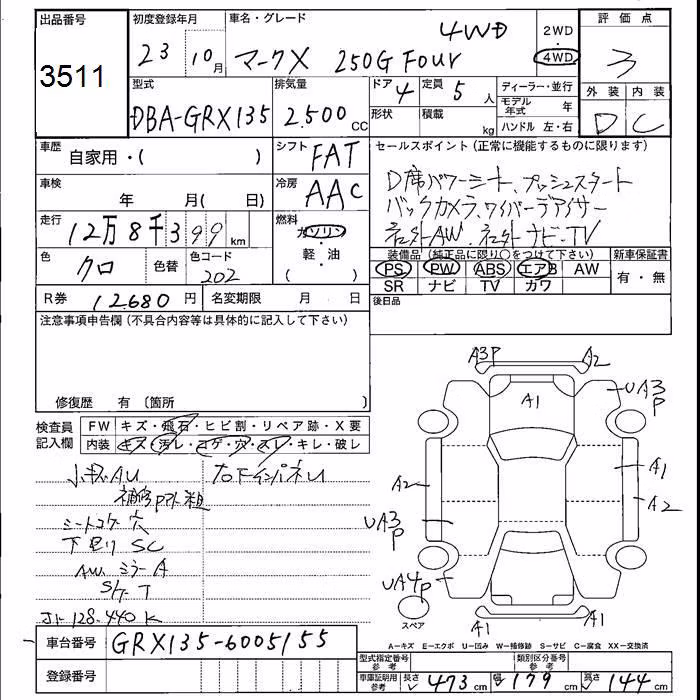 出品番号
3511
初度登録年月
23 10月
車名・グレード
マークX 250G Four 4WD
2WD
・
4WD
評価点
3
外装 内装
D C
型式
DBA-GRX135
排気量
2.500 cc
ドア 4
定員 5人
形状
積載 kg
ディーラー・並行
モデル年式 年
ハンドル 左・右
車歴
自家用・( )
シフト FAT
車検
年 月( 日)
冷房 AAC
セールスポイント(正常に機能するものに限ります)
D席パワーシート、プッシュスタート
バックカメラ、ワイパーデアイサー
社外AW、社外ナビ・TV
走行
12万8千399 km
燃料
ガソリン
・
軽・油
( )
色
クロ
色替
色コード
202
R券 12680円
名変期限 月 日
装備品(純正品に限り〇をつけて下さい)
PS PW ABS エアB AW
SR ナビ TV カワ
新車保証書
有・無
後日品
注意事項申告欄(不具合内容等は具体的に記入して下さい)
修復歴 有〔箇所 〕
検査員
記入欄
FW キズ・飛石・ヒビ割・リペア跡・X要
内装 キズ・汚レ・コゲ・穴・スレ・キレ・破レ
小キズAU
右下インパネU
補修P外粗
シートコゲ穴
下廻りSC
AW ミラーA
S/ケT
メーター128.440K
車台番号
GRX135-6005155
登録番号
A3P
A2
A1
UA3
P
A1
A2
A2
UA3
P
UA4P
スペア
A1
A1
A=キズ E=エクボ U=凹み W=補修跡 S=サビ C=腐食 XX=交換済
型式指定番号
参考
類別区分番号
参考
車庫証明用
参考
長さ 473 cm
幅 179 cm
高さ 144 cm